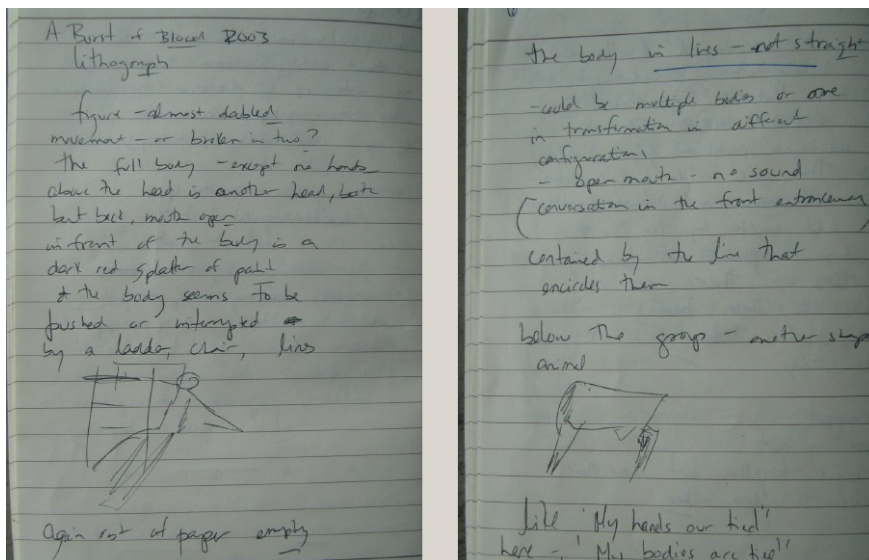 A Burst of Blood 2003
lithograph
figure - almost dabled
movement - or broken in two?
the full body - except one hands
above the head is another head, both
bent back, mouth open
in front of the body is a
dark red splatter of paint
& the body seems to be
pushed or interrupted
by a ladder, chair, lines
Again rest of paper empty
the body in lines - not straight
- could be multiple bodies or one
in transformation in different
configurations
- open mouth - no sound
(conversation in the front entranceway)
contained by the line that
encircles them
below the group - another shape
animal
like "My hands our tied"
here - "My bodies are tied"